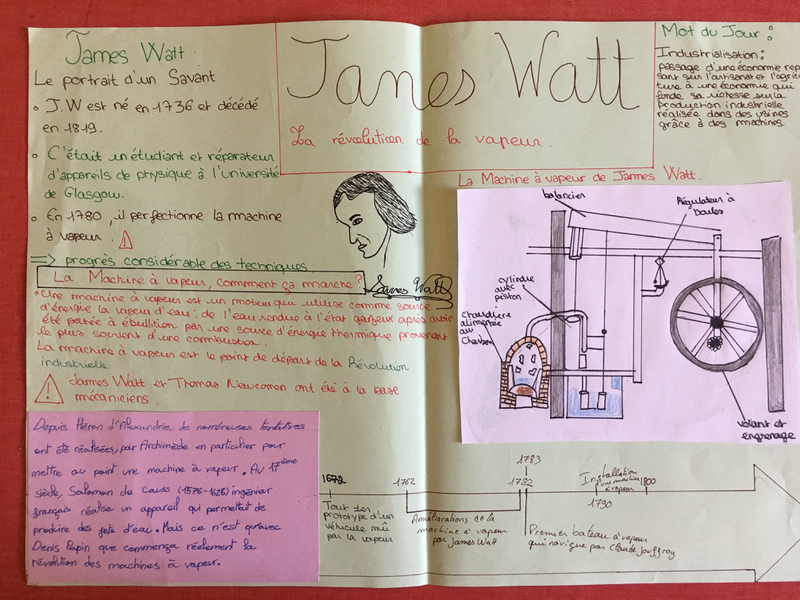 James Watt.
Le portrait d'un Savant
• J.W est né en 1736 et décédé
en 1819.
• C'était un étudiant et réparateur
d'appareils de physique à l'université
de Glasgow.
• En 1780, il perfectionne la machine
à vapeur.
=> progrès considérable des techniques
James Watt
La révolution de la vapeur
Mot du Jour :
Industrialisation :
passage d'une économie repo
sant sur l'artisanat et l'agricul
ture à une économie qui
fonde sa richesse sur la
production industrielle
réalisée dans des usines
grâce à des machines.
La Machine à vapeur, comment ça marche ?
James Watt
• Une machine à vapeur est un moteur qui utilise comme source
d'énergie la vapeur d'eau : de l'eau rendue à l'état gazeux après avoir
été portée à ébullition par une source d'énergie thermique provenant
le plus souvent d'une combustion.
La machine à vapeur est le point de départ de la Révolution
industrielle
James Watt et Thomas Newcomen ont été à la base
mécaniciens.
La Machine à vapeur de James Watt.
balancier
Régulateur à
boules
cylindre
avec
piston
chaudière
alimentée
au
Charbon
volant et
engrenage
Depuis Héron d'Alexandrie, de nombreuses tentatives
ont été réalisées, par Archimède en particulier pour
mettre au point une machine à vapeur. Au 17ème
siècle, Salomon de Causs (1576-1626) ingénieur
français réalise un appareil qui permettait de
produire des jets d'eau. Mais ce n'est qu'avec
Denis Papin que commença réelement la
révolution des machines à vapeur.
1672
Tout 1er
prototype d'un
véhicule mû
par la vapeur
1762
Améliorations de la
machine à vapeur
par James Watt
1783
1782
Premier bateau à vapeur
qui navigue par Claude Jouffroy
Installation
d'une machine
à vapeur
1790
1800